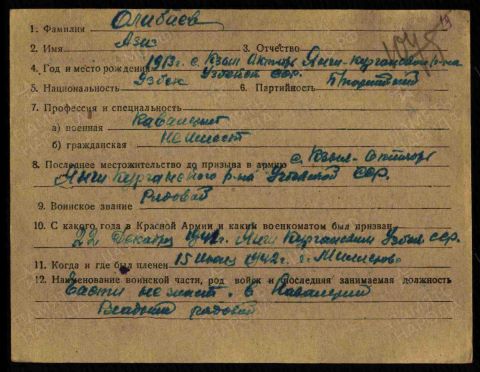 1. Фамилия Олибаев
2. Имя Азиз 3. Отчество
4. Год и место рождения 1913г. с. Кзыл Октябрь Янги-Курганского р-на
Узбекской ССР.
5. Национальность Узбек 6. Партийность Б/партийный
7. Профессия и специальность
а) военная Кавалерист
б) гражданская не имеет
8. Последнее местожительство до призыва в армию с. Кзыл-Октябрь
Янги Курганского р-на Узбекской ССР.
9. Воинское звание Рядовой
10. С какого года в Красной Армии и каким военкоматом был призван
22 Декабря 1941г. Янги Курганским Узбек ССР.
11. Когда и где был пленен 15 1942г. г.
12. Наименование воинской части, род войск и последняя занимаемая должность
Части не знает. в Кавалерии
рядовой
19